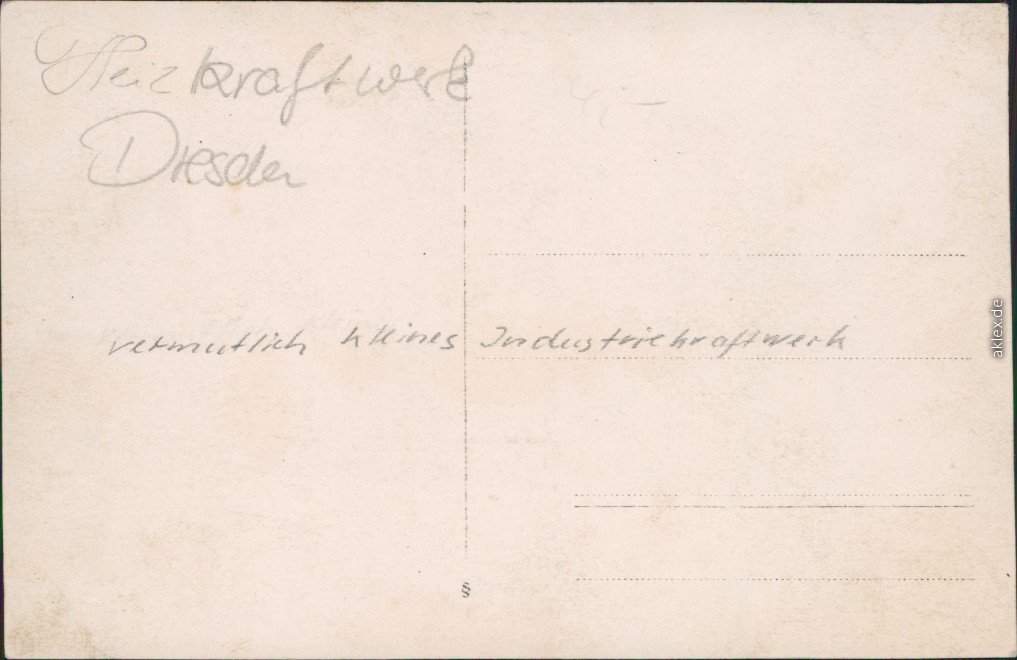 Heizkraftwerk
Dresden
4,-
vermutlich kleines Industriekraftwerk
§
aklex.de